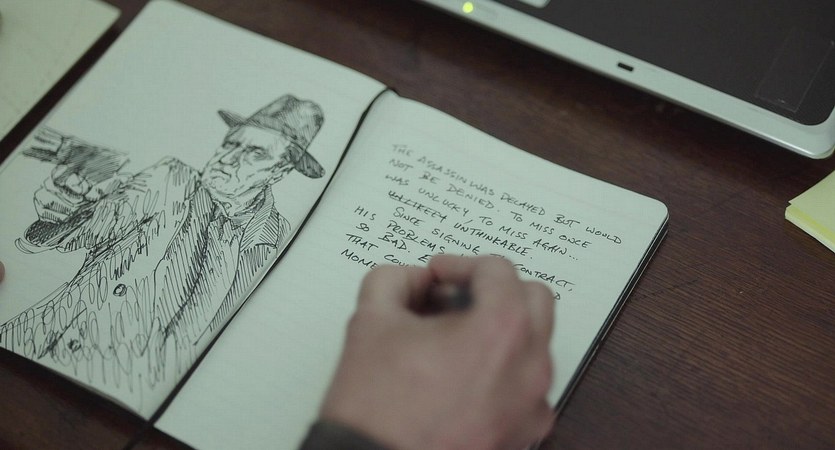 THE ASSASSIN WAS DELAYED BUT WOULD
NOT BE DENIED. TO MISS ONCE
WAS UNLUCKY. TO MISS AGAIN...
UNTHINKABLE.
SINCE SIGNING CONTRACT,
HIS PROBLEMS
SO BAD.
THAT